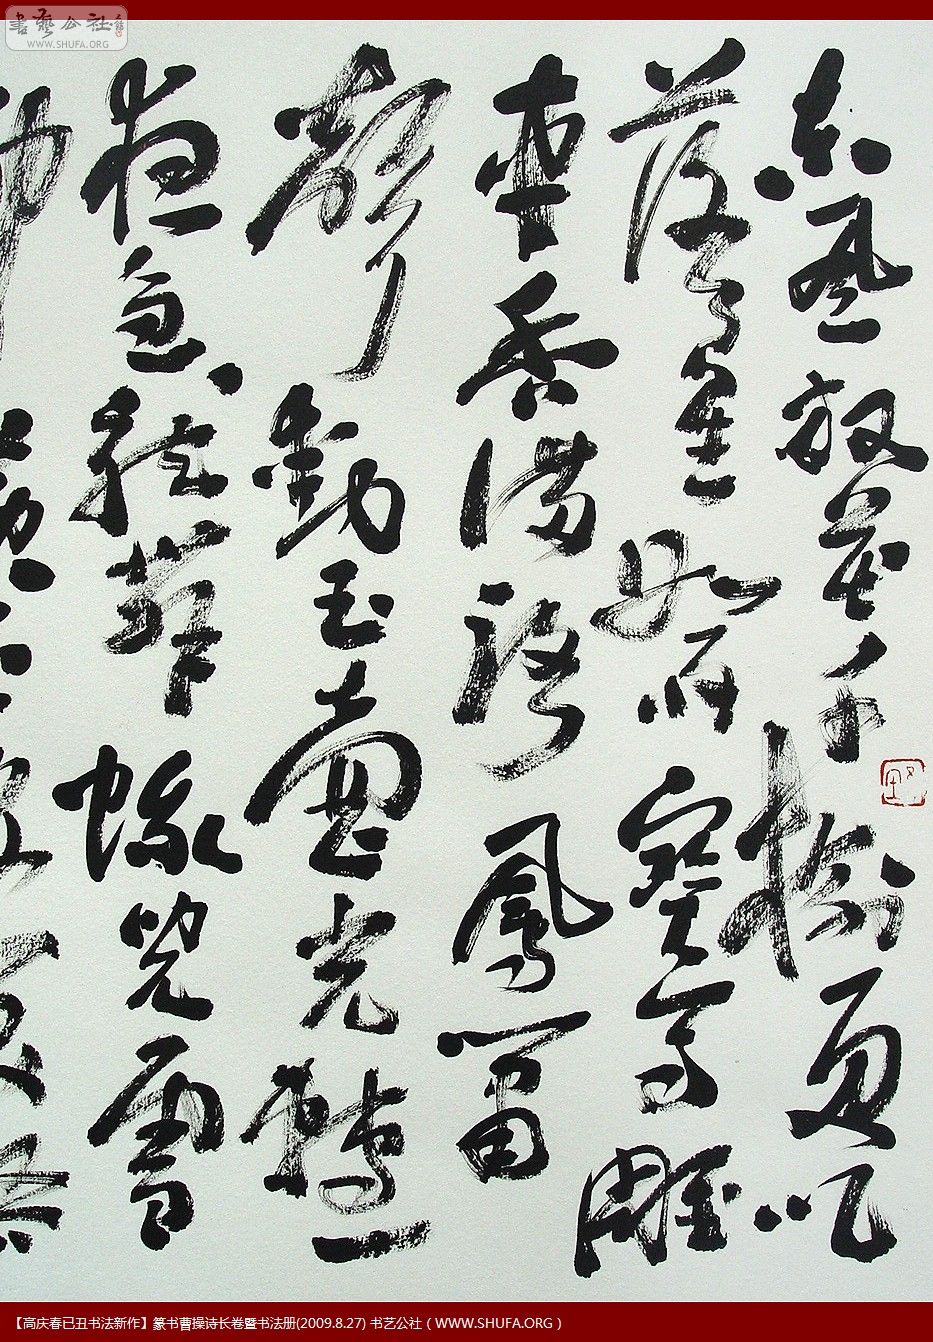 書藝公社
WWW.SHUFA.ORG
東風放花千樹更吹
落星如雨寶馬雕
車香滿路鳳簫
聲動玉壺光轉一
夜魚龍舞蛾兒雪
【高庆春已丑书法新作】篆书曹操诗长卷暨书法册(2009.8.27) 书艺公社（WWW.SHUFA.ORG）